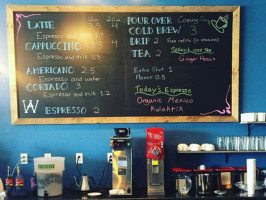 12oz 16oz
LATTE 4
Espresso and
CAPPUCCINO 3.5 4
Espresso and milk
AMERICANO 2.5
Espresso and water
CORTADO 3
Espresso and milk 1:2
W
ESPRESSO 2
POUR OVER Coming
COLD BREW 3
DRIP 2 Free refills
TEA 2
Ginger Peach
Extra Shot 1
Flavor 0.5
Today's Espresso
Organic Mexico